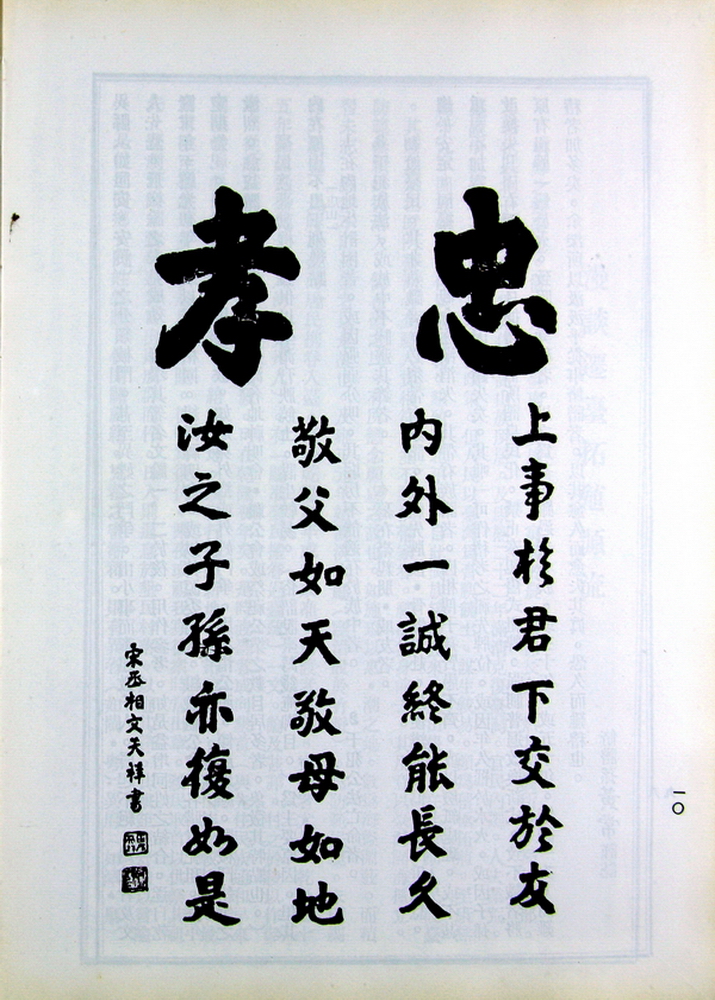 忠孝
上事於君下交於友
內外一誠終能長久
敬父如天敬母如地
汝之子孫亦復如是
宋丞相文天祥書
一〇